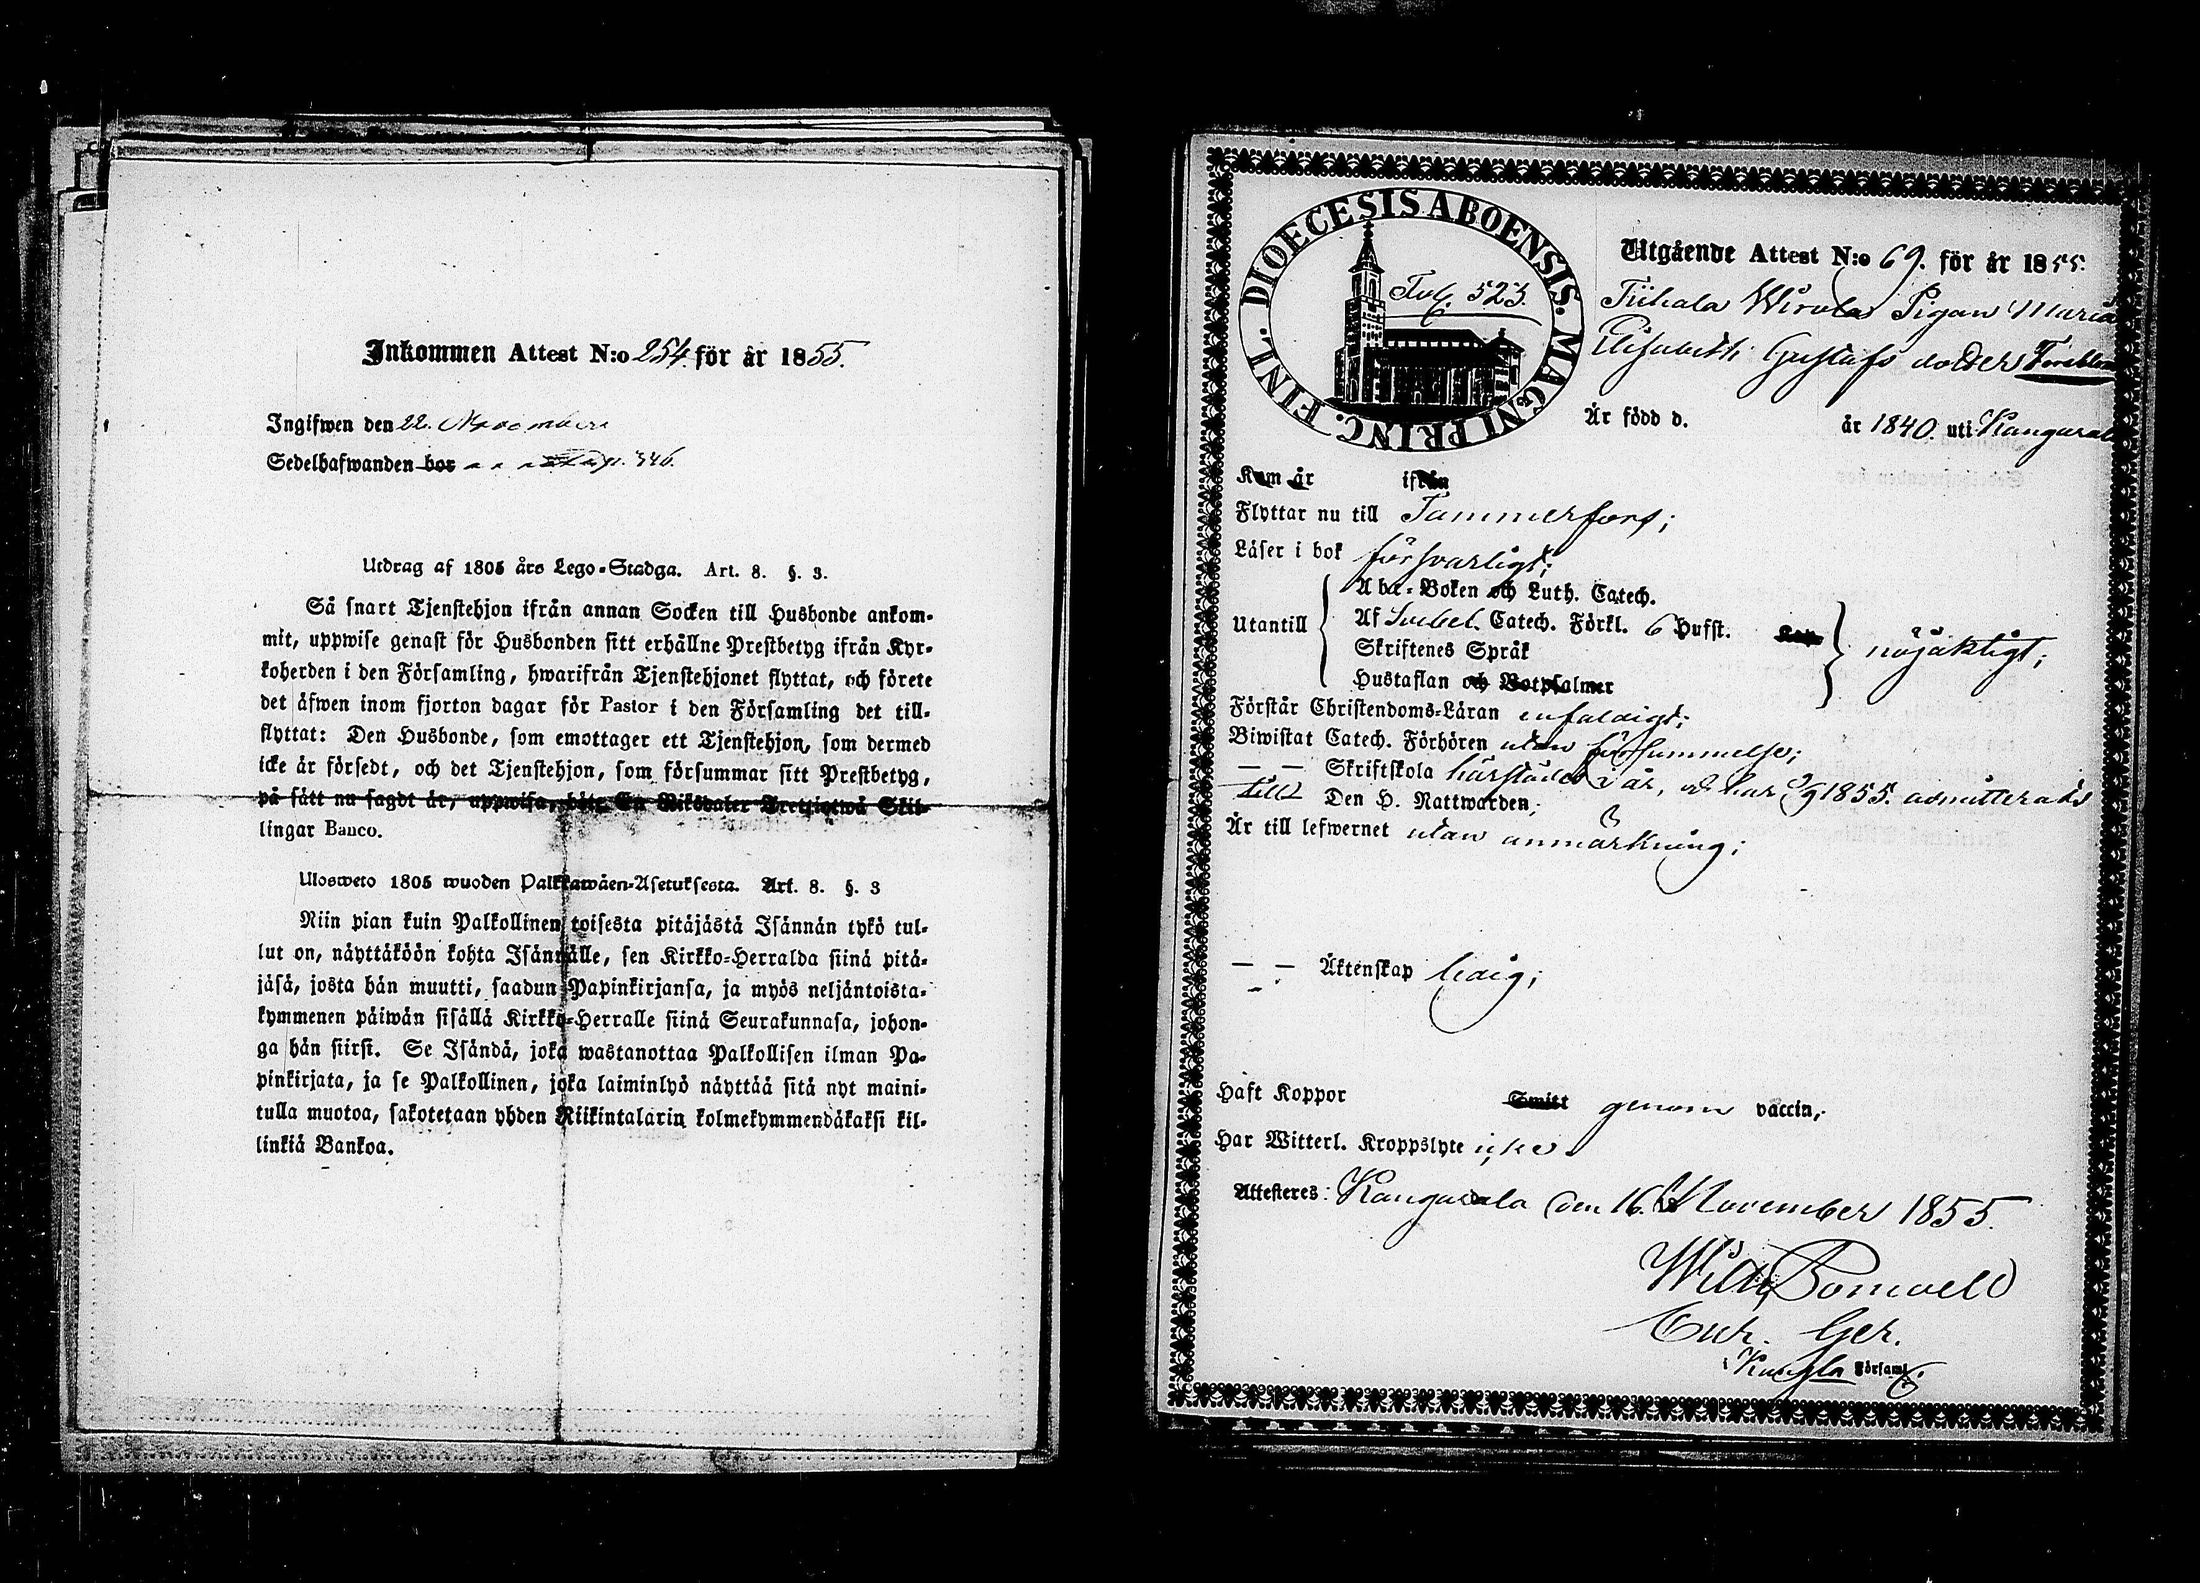 Inkommen Attest N:o 254. för år 1855.
Ingifwen den 22. November
Sedelhafwanden bor 346.
Utdrag af 1805 års Lego-Stadga. Art. 8. §. 3.
Så snart Tjenstehjon ifrån annan Socken till Husbonde ankom-
mit, uppwise genast för Husbonden sitt erhållne Prestbetyg ifrån Kyr-
koherden i den Församling, hwarifrån Tjenstehjonet flyttat, och förete
det äfwen inom fjorton dagar för Pastor i den Församling det till-
flyttat: Den Husbonde, som emottager ett Tjenstehjon, som dermed
icke är försedt, och det Tjenstehjon, som försummar sitt Prestbetyg,
på sätt nu sagdt är, uppwisa, böte En Riksdaler Trettiotwå Skil-
lingar Banco.
Ulosweto 1805 wuoden Palkkawäen-Asetuksesta. Art. 8. §. 3
Niin pian kuin Palkollinen toisesta pitäjästä Isännän tykö tul-
lut on, näyttäköön kohta Isännälle, sen Kirkko-Herralda siinä pitä-
jäsä, josta hän muutti, saadun Papinkirjansa, ja myös neljäntoista-
kymmenen päiwän sisällä Kirkko-Herralle siinä Seurakunnasa, johon-
ga hän siirsi. Se Isändä, joka wastanottaa Palkollisen ilman Pa-
pinkirjata, ja se Palkollinen, joka laiminlyö näyttää sitä nyt maini-
tulla muotoa, sakotetaan yhden Riikintalarin kolmekymmendäkaksi kil-
linkiä Bankoa.
DIOECESIS ABOENSIS. MAGNI PRINC. FINL.
Fol. 523.
Utgående Attest N:o 69. för år 1855.
Tiihala Wirola Pigan Maria
Elisabeth Gustafs dotter
Är född d. år 1840. uti Kangasala
Kom år ifrån
Flyttar nu till Tammerfors;
Läser i bok försvarligt;
Utantill Abc-Boken och Luth. Catech.
Af Svebel. Catech. Förkl. 6 Hufst. Kap. nöjaktigt;
Skriftenes Språk
Hustaflan och Botpsalmer
Förstår Christendoms-Läran enfaldigt;
Biwistat Catech. Förhören utan försummelse;
— — Skriftskola härstädes i år, och har 2/9 1855. admitterats
till Den H. Nattwarden;
Är till lefwernet utan anmärkning;
— — Äktenskap ledig;
Haft Koppor Smitt genom vaccin,
Har Witterl. Kroppslyte icke.
Attesteres: Kangasala den 16. November 1855.
Cur. Ger.
i Kangla Församl.